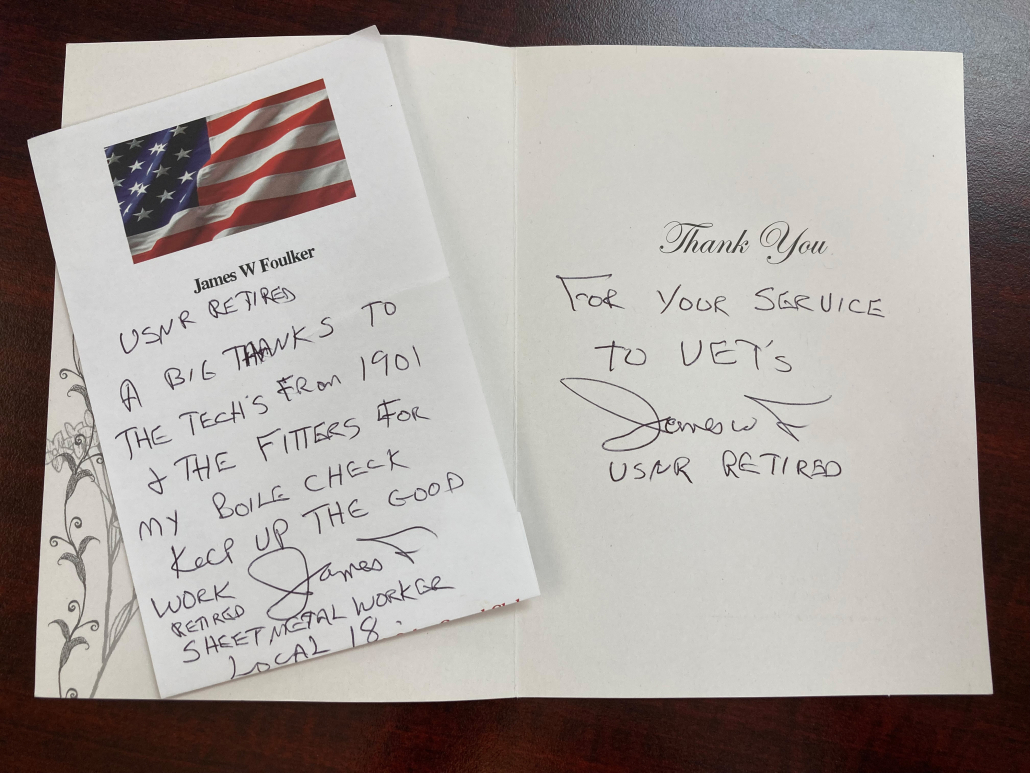 James W Foulker
USNR RETIRED
A BIG THANKS TO
THE TECH'S FROM 1901
& THE FITTERS FOR
MY BOILE CHECK
KEEP UP THE GOOD
WORK James F
RETIRED
SHEET METAL WORKER
LOCAL 18
Thank You
FOR YOUR SERVICE
TO VET'S
James W F
USNR RETIRED